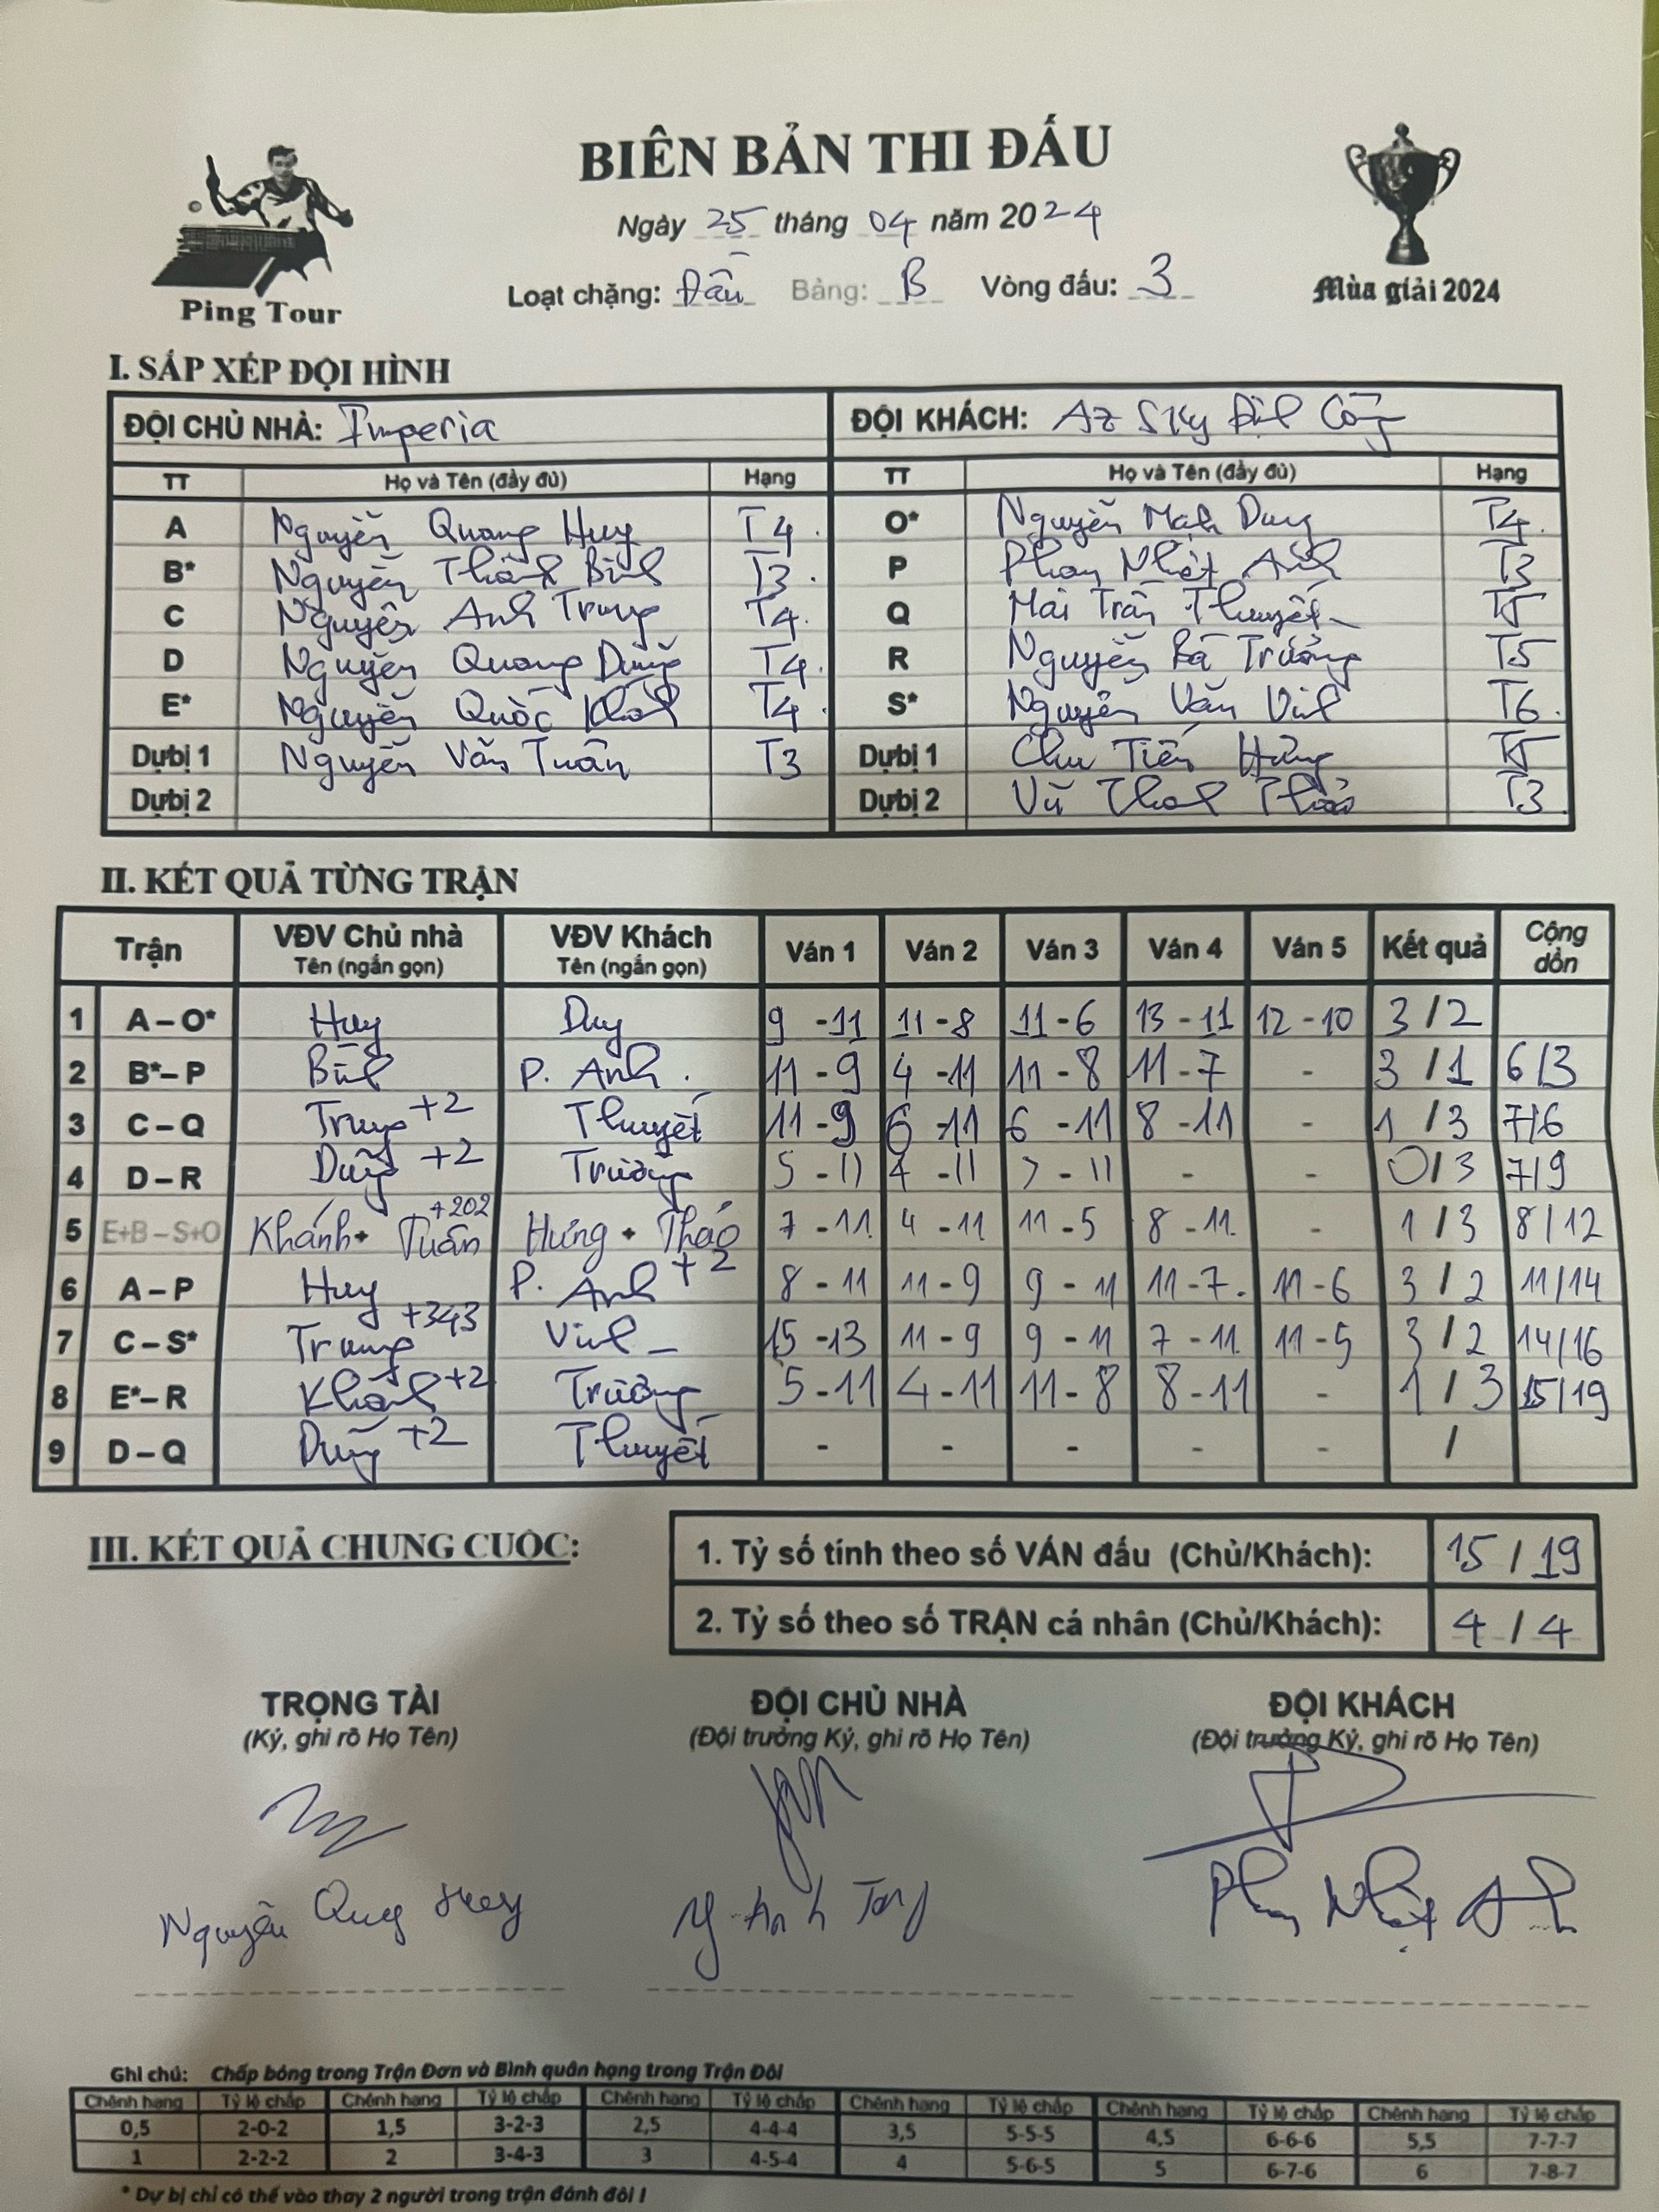 BIÊN BẢN THI ĐẤU
Ngày 25 tháng 04 năm 2024
Loạt chặng: Đầu Bảng: B Vòng đấu: 3
Ping Tour
Mùa giải 2024
I. SẮP XẾP ĐỘI HÌNH
ĐỘI CHỦ NHÀ: Imperia ĐỘI KHÁCH: AZ Sky Định Công
TT Họ và Tên (đầy đủ) Hạng TT Họ và Tên (đầy đủ) Hạng
A Nguyễn Quang Huy T4. O* Nguyễn Mạnh Duy T4.
B* Nguyễn Thanh Bình T3. P Phan Nhật Anh T3
C Nguyễn Anh Trung T4. Q Mai Trần Thuyết T5
D Nguyễn Quang Dũng T4. R Nguyễn Bá Trường T5
E* Nguyễn Quốc Khánh T4. S* Nguyễn Văn Vinh T6.
Dự bị 1 Nguyễn Văn Tuân T3 Dự bị 1 Chu Tiến Hưng T5
Dự bị 2 Dự bị 2 Vũ Thanh Thảo T3
II. KẾT QUẢ TỪNG TRẬN
Trận VĐV Chủ nhà VĐV Khách Ván 1 Ván 2 Ván 3 Ván 4 Ván 5 Kết quả Cộng dồn
Tên (ngắn gọn) Tên (ngắn gọn)
1 A – O* Huy Duy 9 - 11 11 - 8 11 - 6 13 - 11 12 - 10 3 / 2
2 B* – P Bình P. Anh. 11 - 9 4 - 11 11 - 8 11 - 7 - 3 / 1 6/3
3 C – Q Trung +2 Thuyết 11 - 9 6 - 11 6 - 11 8 - 11 - 1 / 3 7/6
4 D – R Dũng +2 Trường 5 - 11 4 - 11 7 - 11 - - 0 / 3 7/9
5 E+B – S+O Khánh + Tuấn +202 Hưng + Thảo 7 - 11. 4 - 11 11 - 5 8 - 11. - 1 / 3 8/12
6 A – P Huy P. Anh +2 8 - 11 11 - 9 9 - 11 11 - 7. 11 - 6 3 / 2 11/14
7 C – S* Trung +343 Vinh 15 - 13 11 - 9 9 - 11 7 - 11. 11 - 5 3 / 2 14/16
8 E* – R Khánh +2 Trường 5 - 11 4 - 11 11 - 8 8 - 11 - 1 / 3 15/19
9 D – Q Dũng +2 Thuyết - - - - - /
III. KẾT QUẢ CHUNG CUỘC:
1. Tỷ số tính theo số VÁN đấu (Chủ/Khách): 15 / 19
2. Tỷ số theo số TRẬN cá nhân (Chủ/Khách): 4 / 4
TRỌNG TÀI ĐỘI CHỦ NHÀ ĐỘI KHÁCH
(Ký, ghi rõ Họ Tên) (Đội trưởng Ký, ghi rõ Họ Tên) (Đội trưởng Ký, ghi rõ Họ Tên)
Nguyễn Quang Huy Phan Nhật Anh
Ghi chú: Chấp bóng trong Trận Đơn và Bình quân hạng trong Trận Đôi
Chênh hạng Tỷ lệ chấp Chênh hạng Tỷ lệ chấp Chênh hạng Tỷ lệ chấp Chênh hạng Tỷ lệ chấp Chênh hạng Tỷ lệ chấp Chênh hạng Tỷ lệ chấp
0,5 2-0-2 1,5 3-2-3 2,5 4-4-4 3,5 5-5-5 4,5 6-6-6 5,5 7-7-7
1 2-2-2 2 3-4-3 3 4-5-4 4 5-6-5 5 6-7-6 6 7-8-7
* Dự bị chỉ có thể vào thay 2 người trong trận đánh đôi !